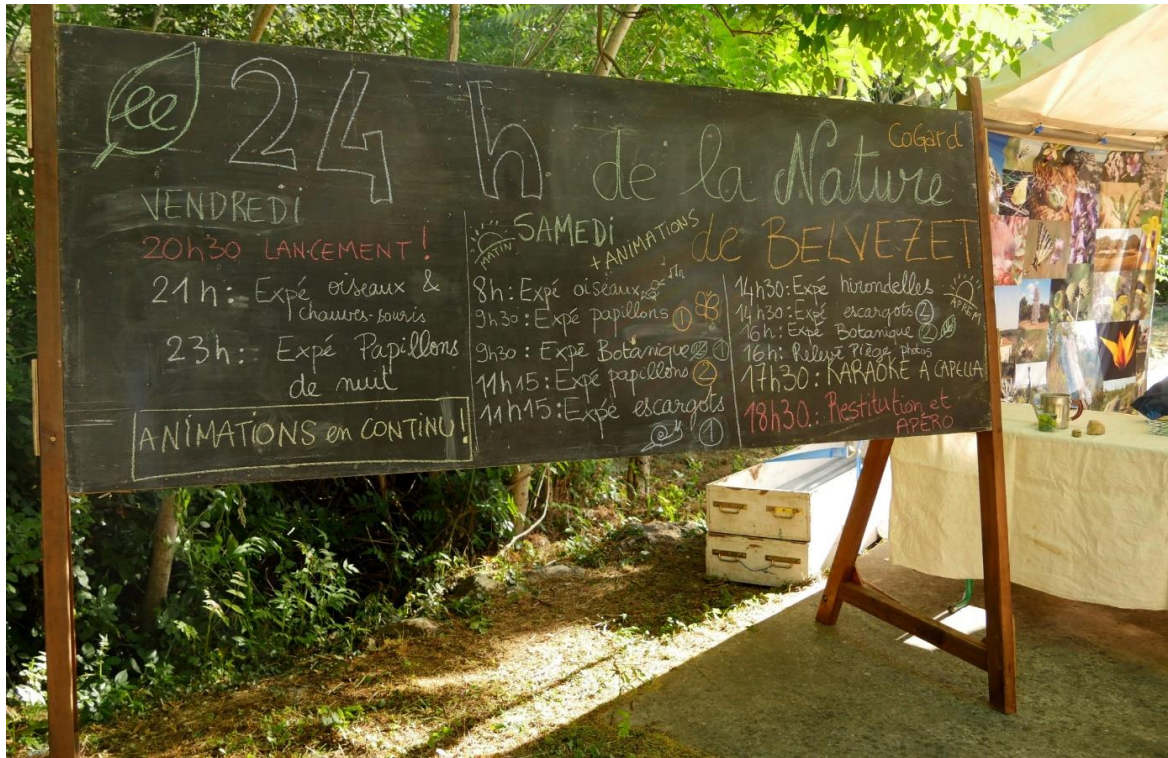 ee 24 h de la Nature
CoGard
de BELVEZET
VENDREDI
20h30 LANCEMENT !
21h : Expé oiseaux &
chauves-souris
23h : Expé Papillons
de nuit
ANIMATIONS en CONTINU !
MATIN
SAMEDI
+ ANIMATIONS
8h : Expé oiseaux
9h30 : Expé papillons 1
9h30 : Expé Botanique 1
11h15 : Expé papillons 2
11h15 : Expé escargots
1
14h30 : Expé hirondelles
APREM
14h30 : Expé escargots 2
16h : Expé Botanique 2
16h : Relevé Piège photos
17h30 : KARAOKE A CAPELLA
18h30 : Restitution et
APERO